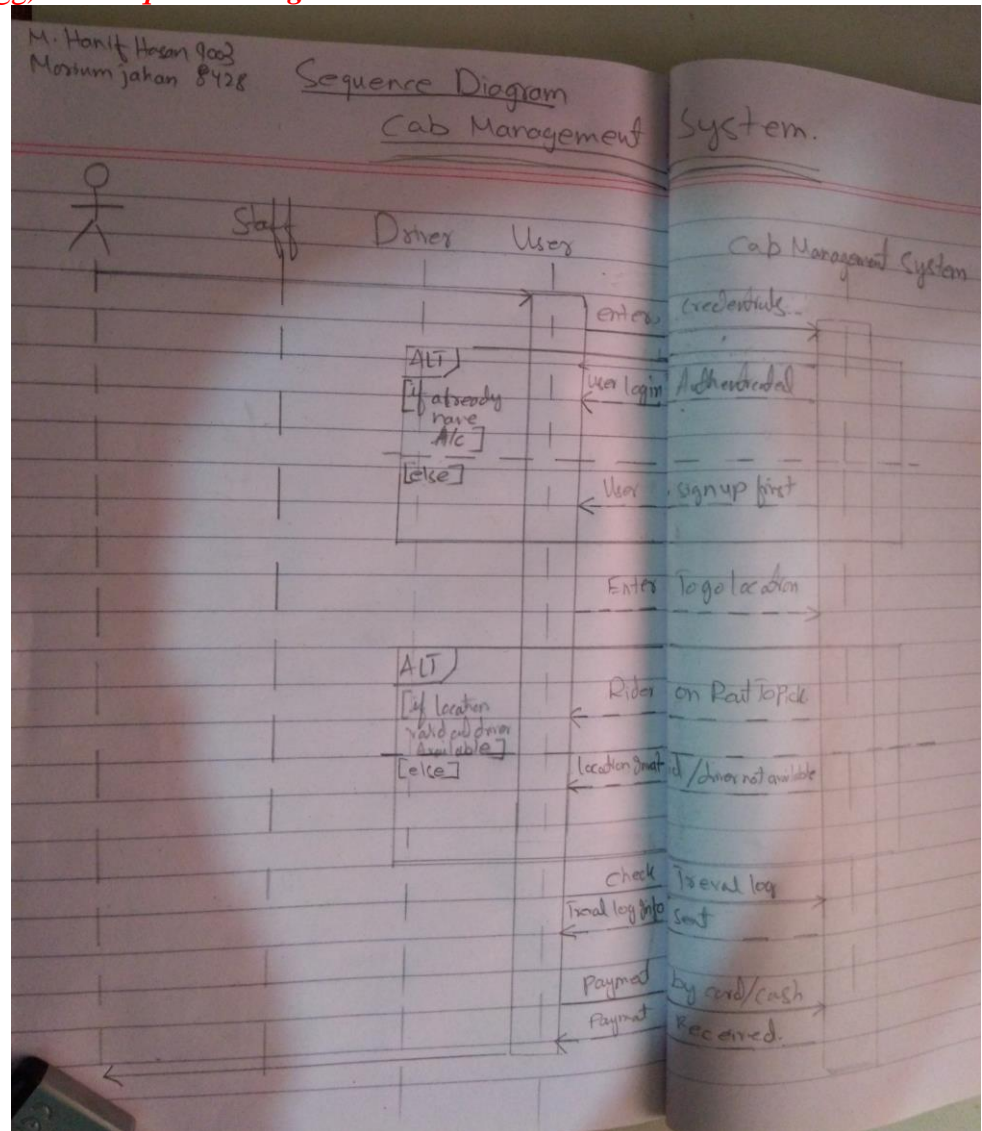 M. Hanif Hasan 9003
Moriumjahan 8428
Sequence Diagram
Cab Management System.
Staff
Driver
User
Cab Management System
enter credentials
ALT
[if already
have
A/c]
User login Authenticated
[else]
User signup first
Enter To go location
ALT
[if location
valid and driver
Available]
Rider on Rout To Pick
[else]
location / driver not available
Check Treval log
log Info sent
Payment by card/cash
Payment Received.